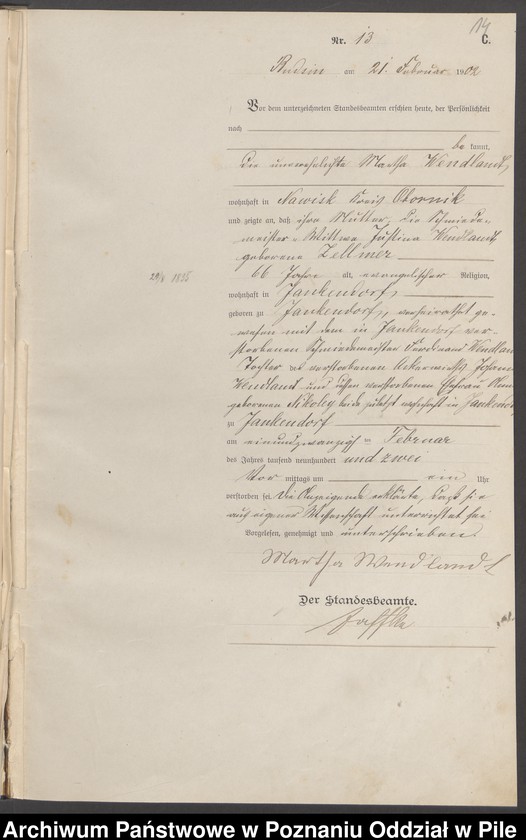 14
Nr. 13
C.
Rudsin am 21. Februar 1902
Vor dem unterzeichneten Standesbeamten erschien heute, der Persönlichkeit
nach
be kannt,
die unverehelichte Martha Wendlandt,
wohnhaft in Nawisk Kreis Obornik
und zeigte an, daß ihre Mutter, die Schmiede-
meister-Wittwe Justina Wendlandt
geborene Zellmer
66 Jahre alt, evangelischer Religion,
29/4
wohnhaft in Jankendorf,
geboren zu Jankendorf, verheirathet ge-
wesen mit dem in Jankendorf ver-
storbenen Schmiedemeister Ferdinand Wendland
Tochter des verstorbenen Johann
Wendland und dessen verstorbenen Ehefrau
geborenen Nikoley beide zuletzt wohnhaft in Jankendorf
zu Jankendorf
am einundzwanzigsten Februar
des Jahres tausend neunhundert und zwei
Vor mittags um ein Uhr
verstorben sei. Die Anzeigende erklärte, daß sie
aus eigener Wissenschaft unterrichtet sei
Vorgelesen, genehmigt und unterschrieben
Martha Wendlandt
Der Standesbeamte.
Jaffke
Archiwum Państwowe w Poznaniu Oddział w Pile